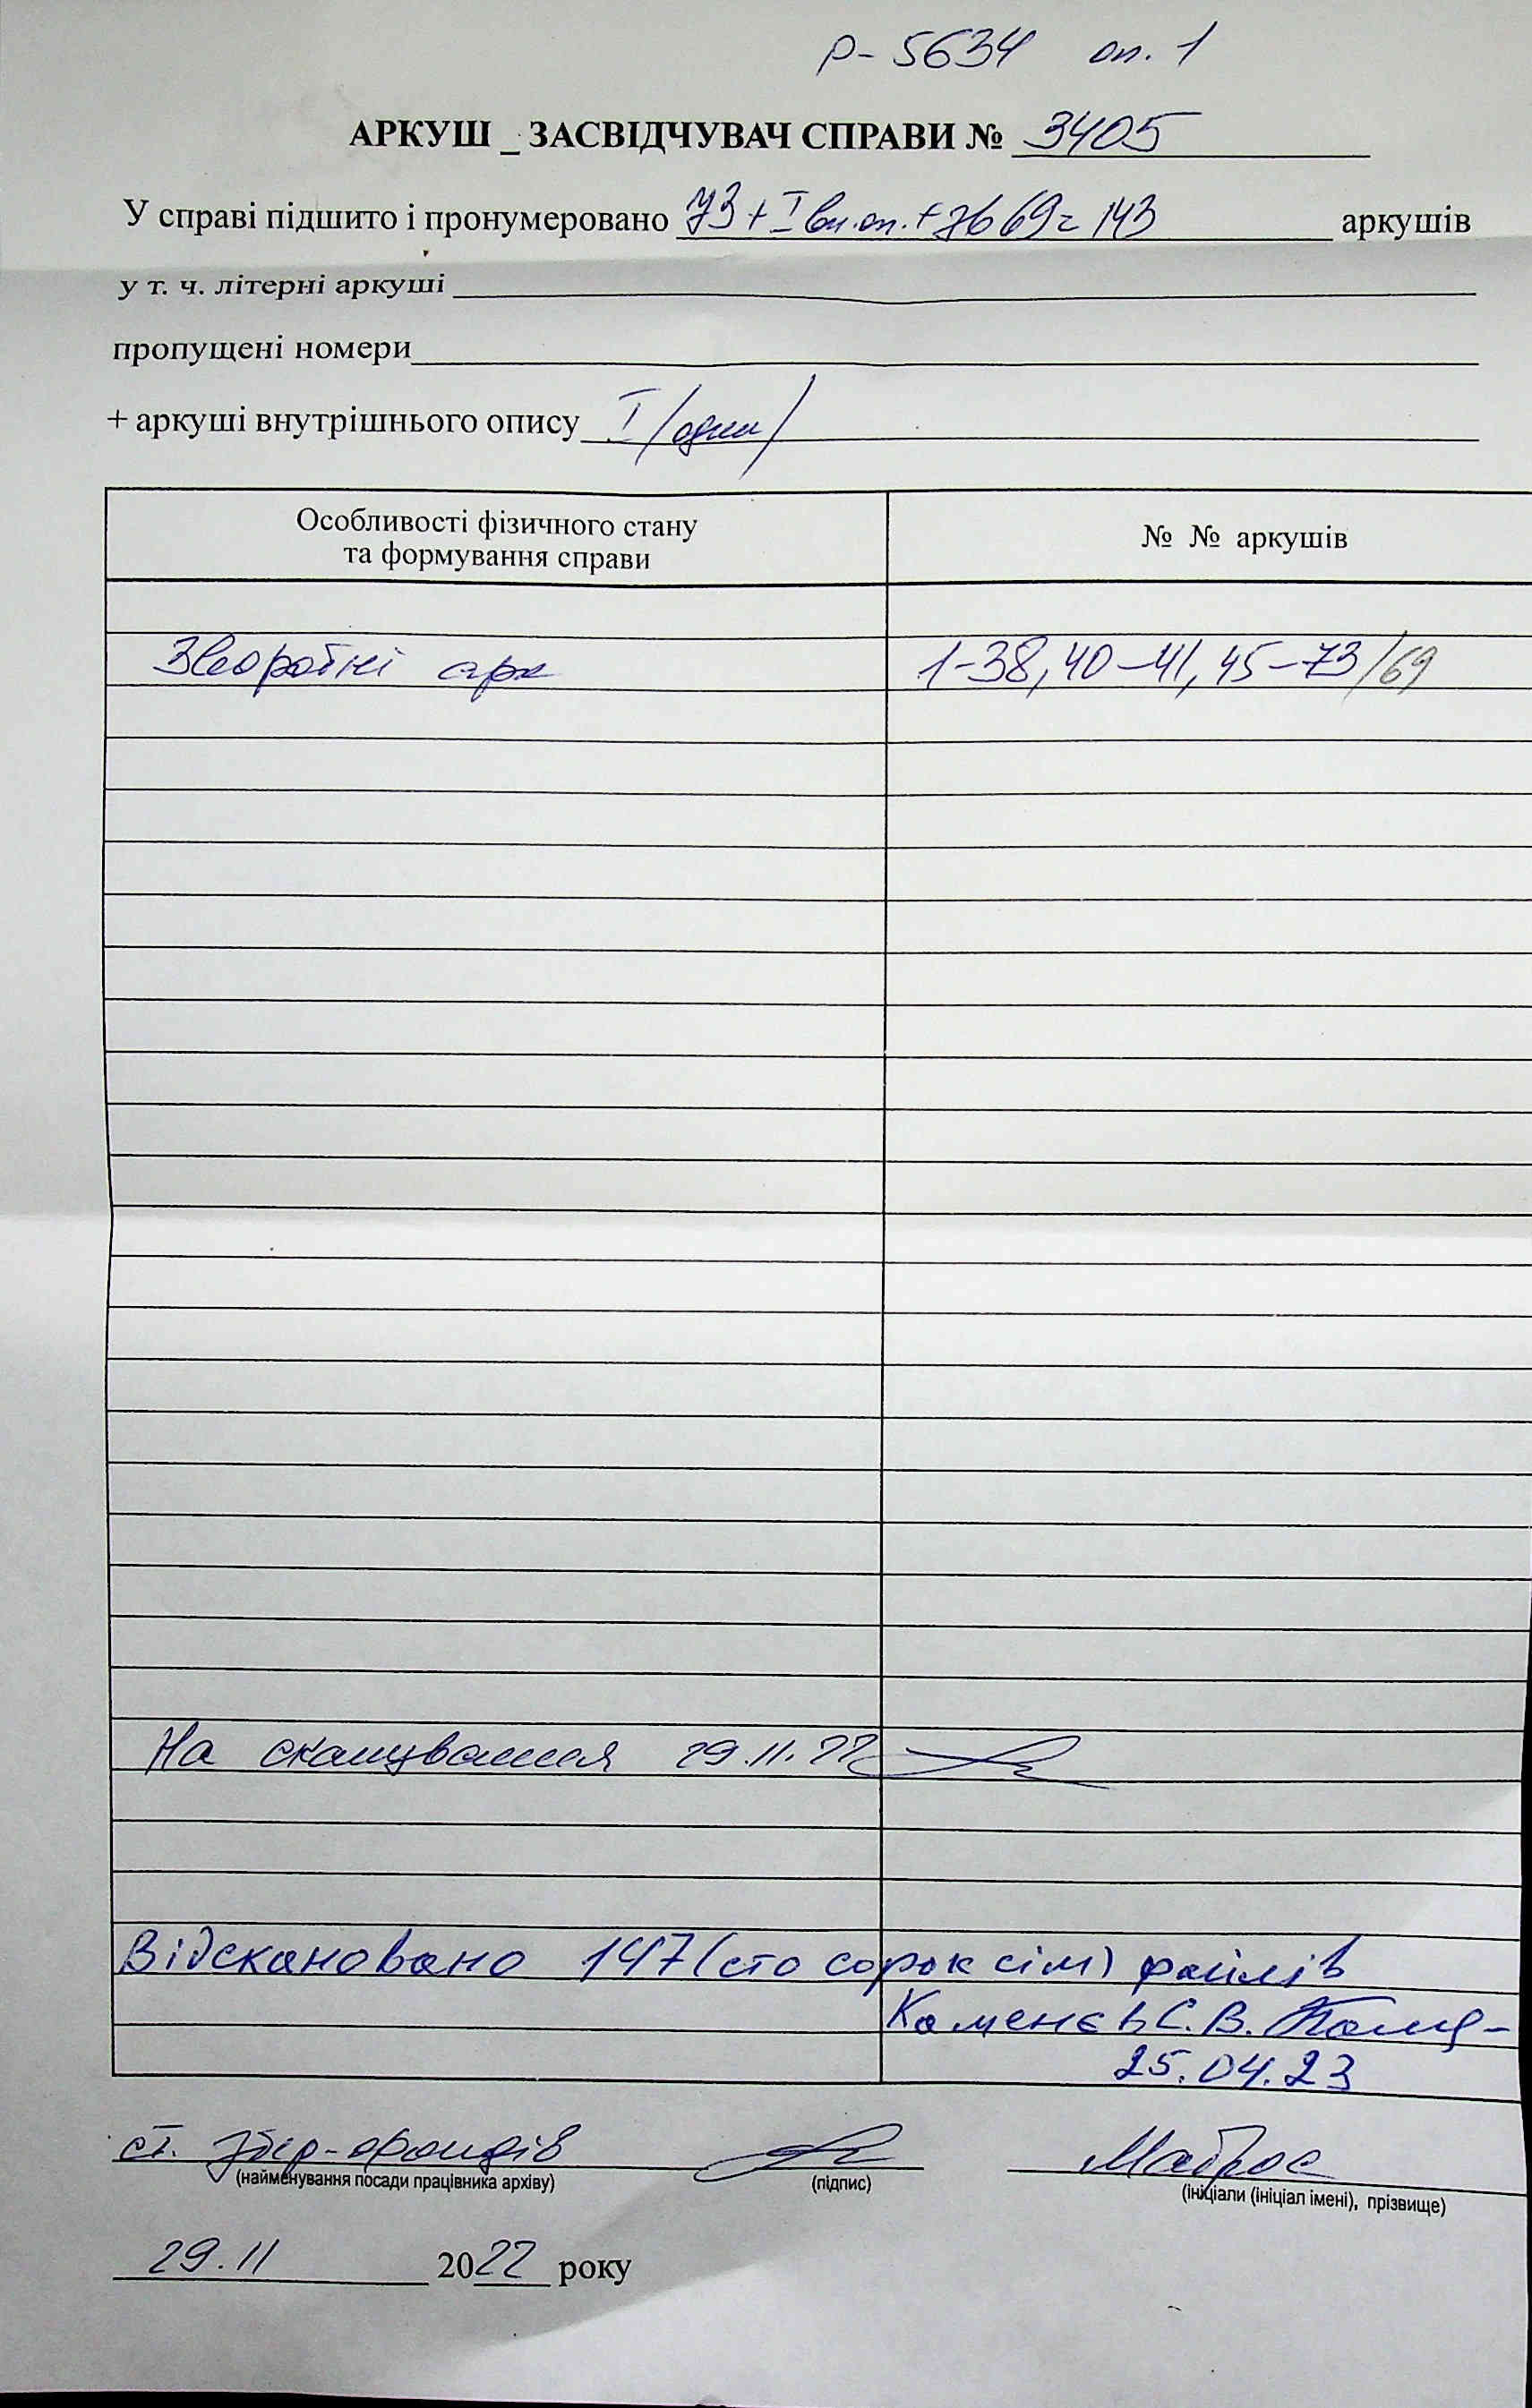 Р-5634 оп. 1
АРКУШ _ ЗАСВІДЧУВАЧ СПРАВИ № 3405
У справі підшито і пронумеровано 73 + I вн.оп. + зв 69 = 143 аркушів
у т. ч. літерні аркуші
пропущені номери
+ аркуші внутрішнього опису I /один/
Особливості фізичного стану та формування справи
№ № аркушів
Зворотні арк 1-38, 40-41, 45-73/69
На сканування 29.11.22
Відскановано 147 (сто сорок сім) файлів
Каменєв С.В.
25.04.23
ст. збер-фондів
(найменування посади працівника архіву) (підпис) (ініціали (ініціал імені), прізвище)
29.11 2022 року